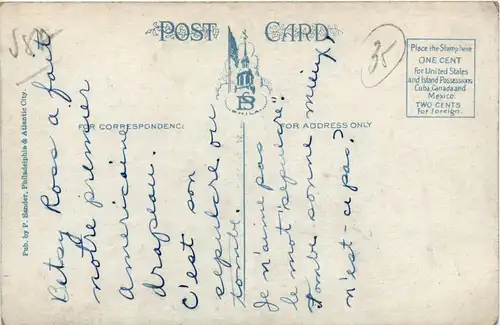 POST CARD
Place the Stamp here
ONE CENT
for United States
and Island Possessions
Cuba, Canada and
Mexico.
TWO CENTS
for foreign.
35
PHILA.
FOR CORRESPONDENCE
FOR ADDRESS ONLY
Pub. by P. Sander, Philadelphia & Atlantic City.
Betsy Ross a fait
notre premier
americaine
drapeau.
C'est son
sepulcre ou
tombe.
Je n'aime pas
le mot "sepulcre".
Tombe sonne mieux,
n'est-ce pas?